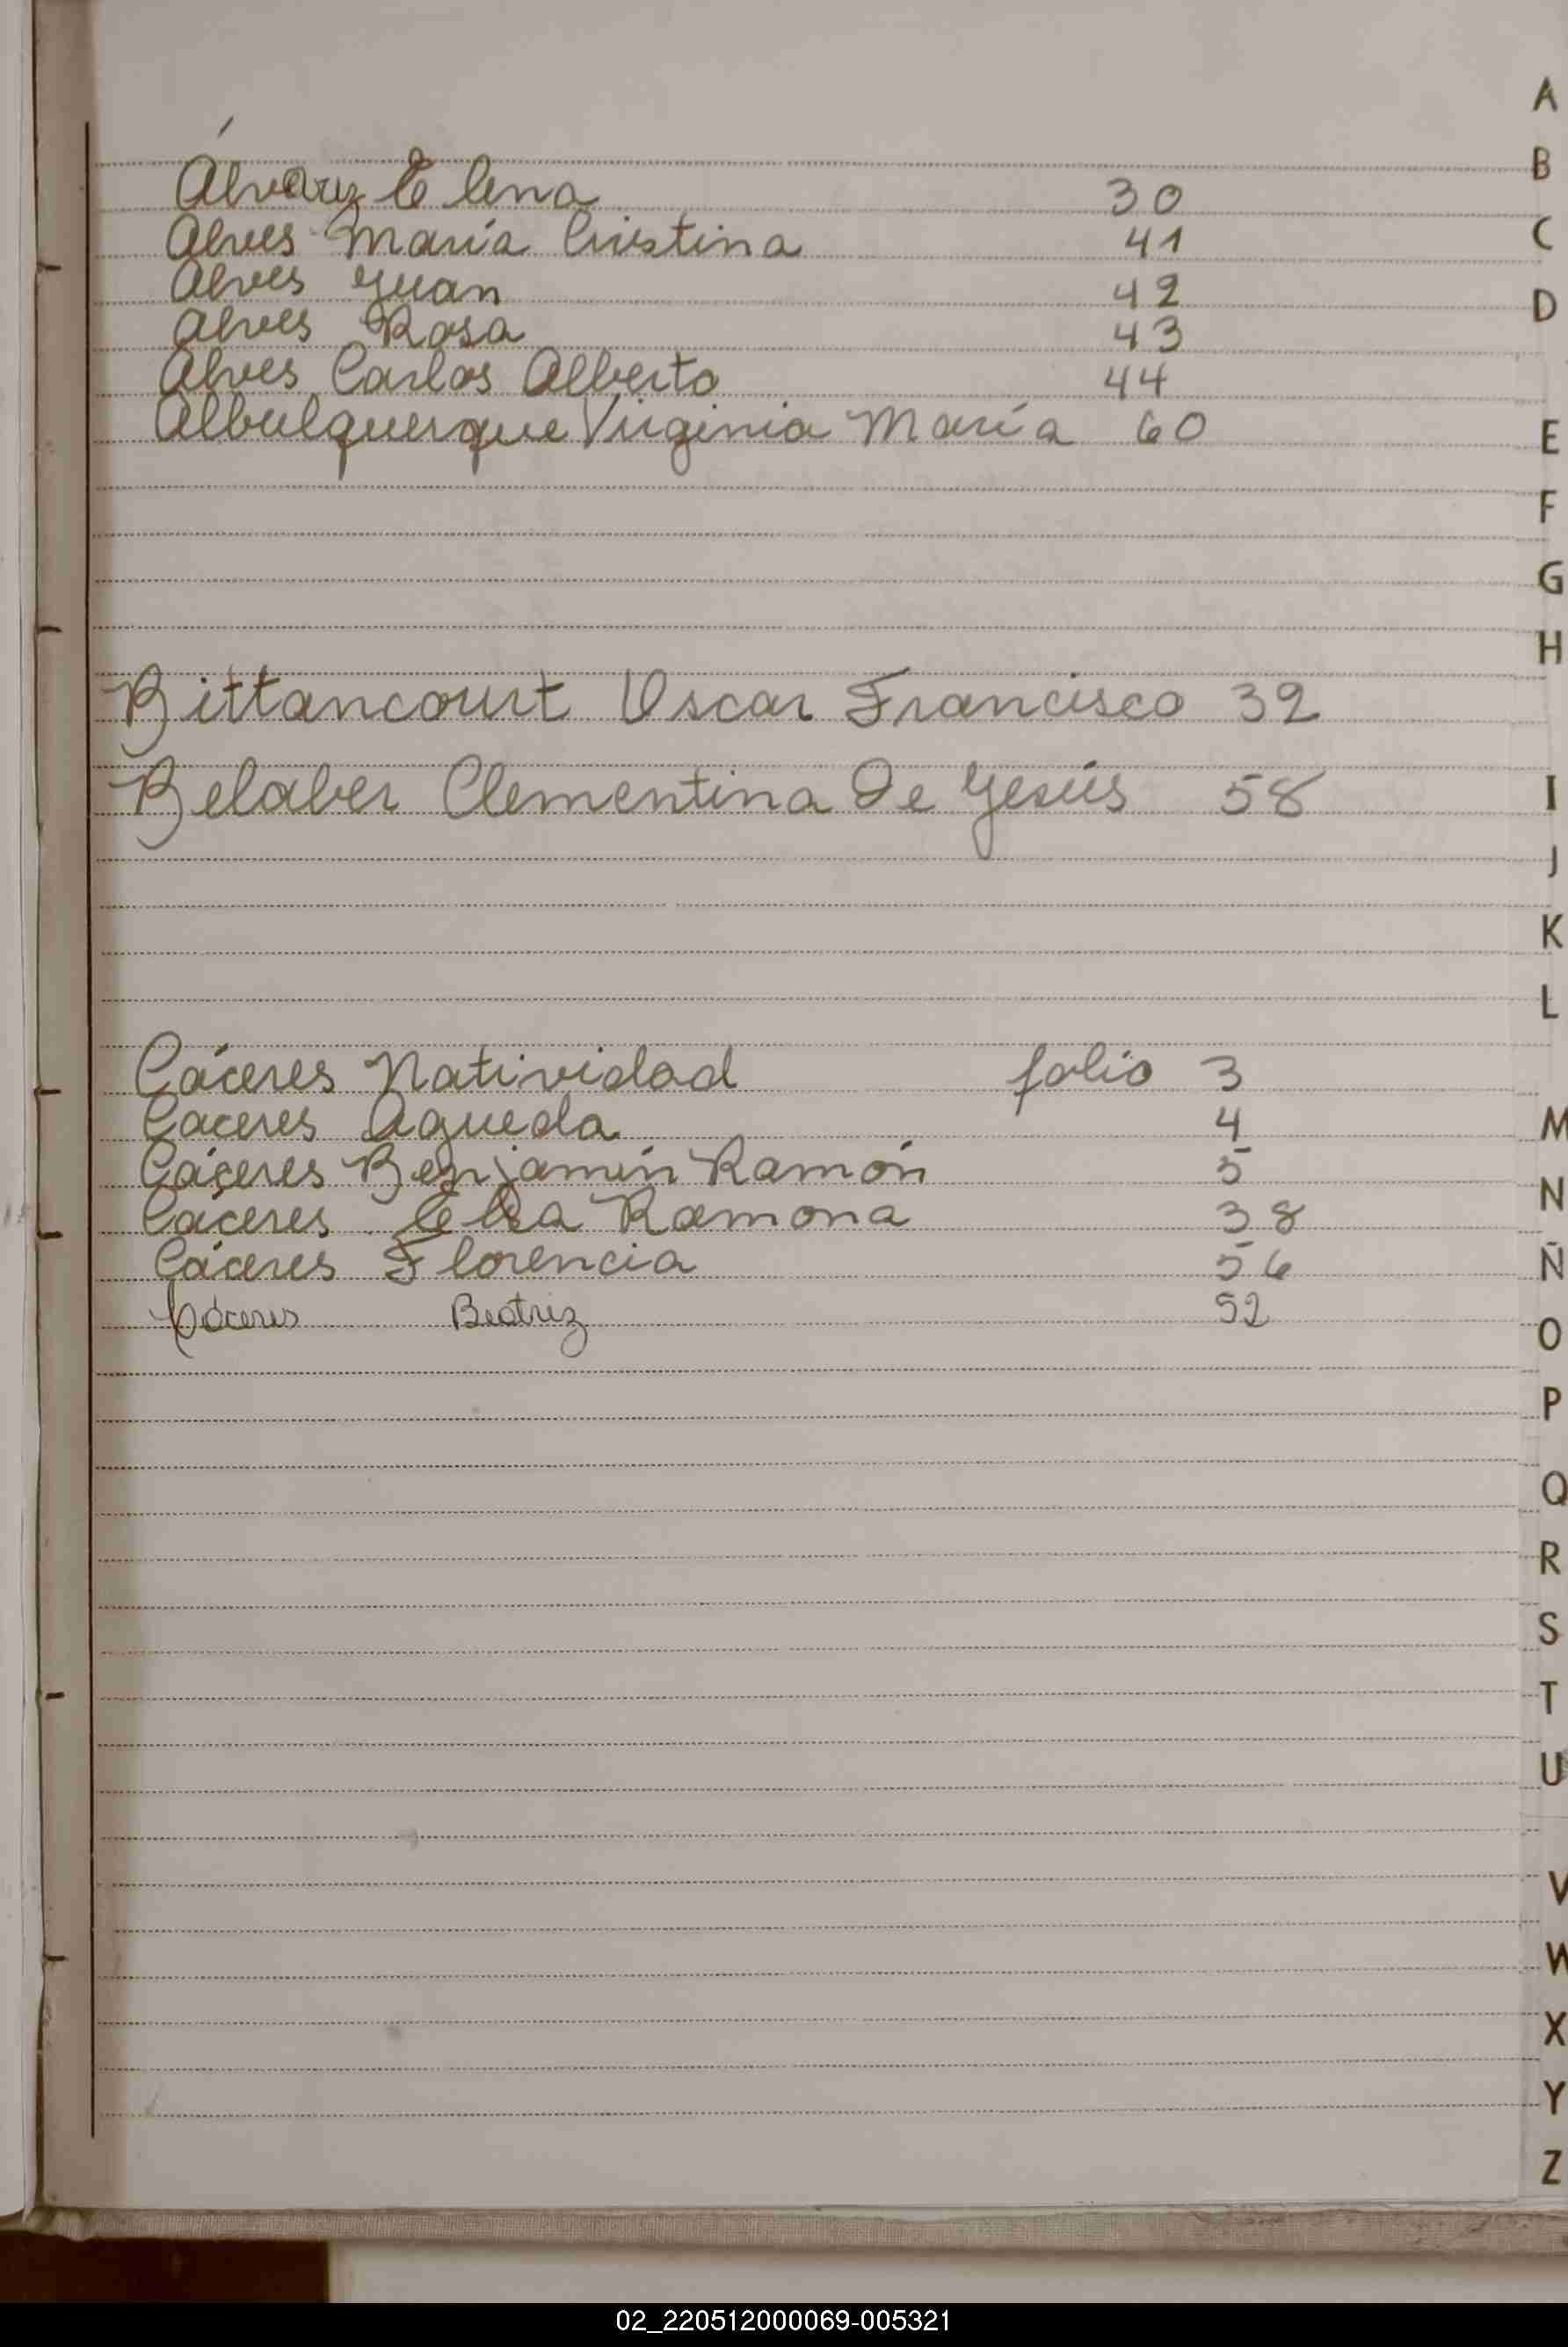 Álvarez Elena 30
Alves María Cristina 41
Alves Juan 42
Alves Rosa 43
Alves Carlos Alberto 44
Albulquerque Virginia María 60
Bittancourt Oscar Francisco 32
Belaber Clementina De Jesús 58
Cáceres Natividad folio 3
Caceres Agueda 4
Cáceres Benjamín Ramón 5
Cáceres Elsa Ramona 38
Cáceres Florencia 56
Cáceres Beatriz 52
A
B
C
D
E
F
G
H
I
J
K
L
M
N
Ñ
O
P
Q
R
S
T
U
V
W
X
Y
Z
02_220512000069-005321